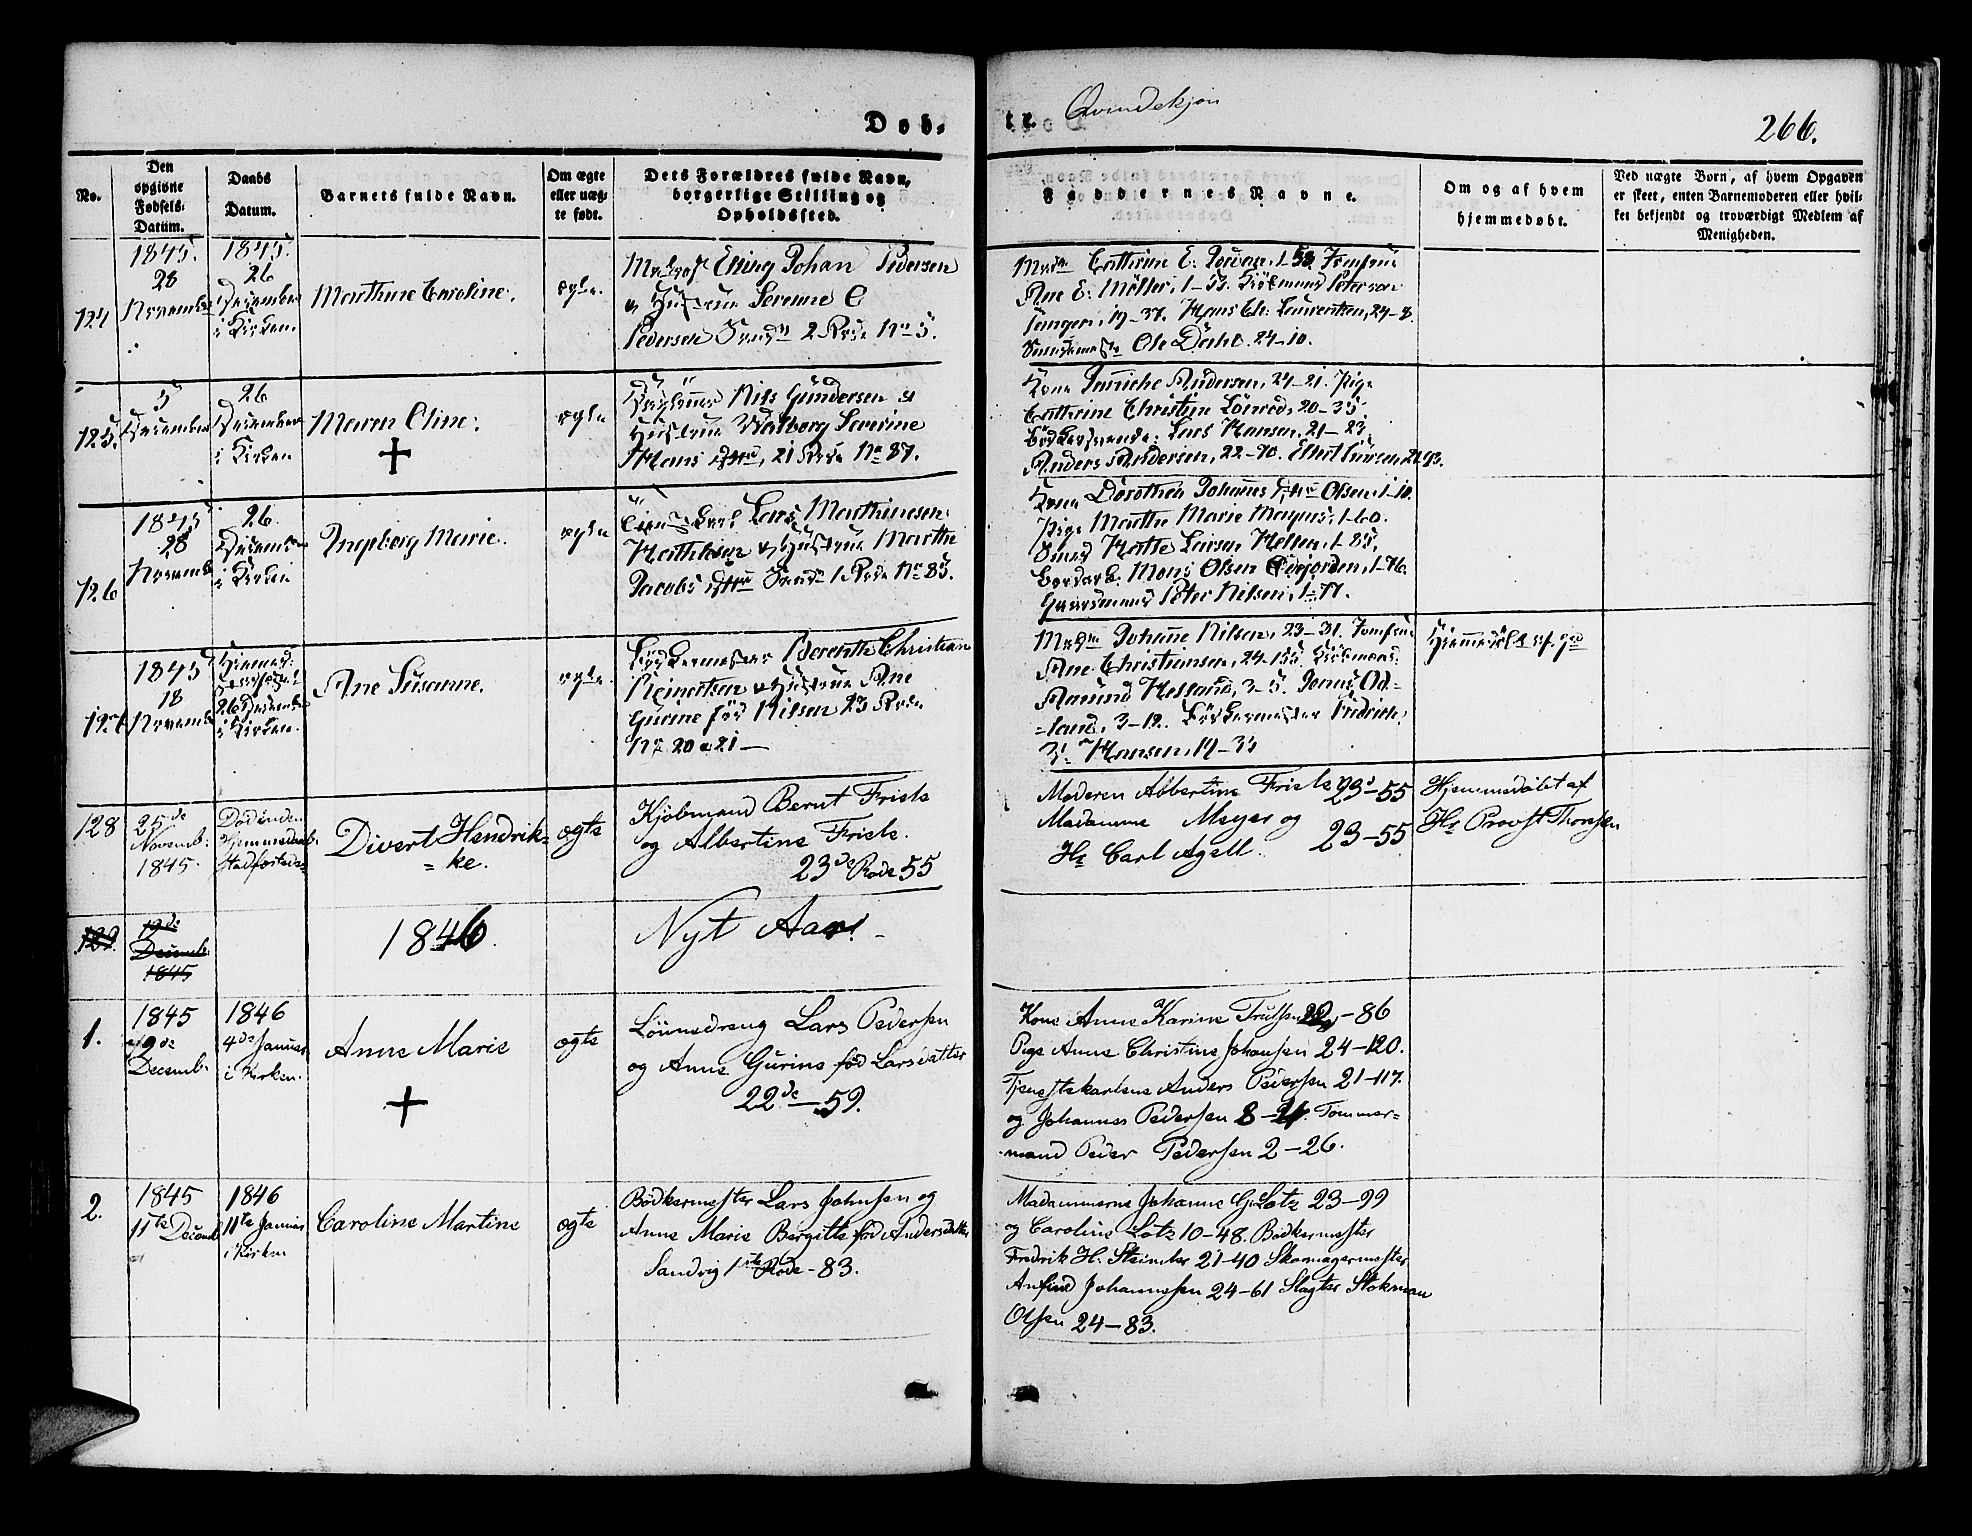 Døb-
te. Qvindekjøn
266.
No.
Den opgivne Fødsels-Datum.
Daabs Datum.
Barnets fulde Navn.
Om ægte eller uæg-te født.
Dets Forældres fulde Navn, borgerlige Stilling og Opholdssted.
Faddernes Navne.
Om og af hvem hjemmedøbt.
Ved uægte Børn, af hvem Opgaven er skeet, enten Barnemoderen eller hvil-ket bekjendt og troværdigt Medlem af Menigheden.
124
1845.
28
November
1845.
26
December
i Kirken.
Marthine Caroline.
ægte.
Elling Johan Pedersen
og Hustrue Serenne C
Pedersen 2 Rode No 5.
Cathrine E. 1-53. Jomfrue
Ane E: Møller, 1-53. Peterson
19-37. Hans Ch: Laurentzen, 24-8.
Ole 24-10.
125.
5
December
26
December
i Kirken
Maren Eline.
+
ægte
Nils Gundersen og
Hustrue Walborg Severine
Hans 21 Rode No 87.
Kone Jannicke Andersen, 24-21. Pige
Cathrine Christine 20-35.
Lars Hansen, 21-23
Anders Andersen, 22-70.
126
1845
28
Novemb
26.
December
i Kirken
Ingeborg Marie.
ægte
Lars Marthinesen
og Hustrue Marthe
Jacobs 1. Rode No 83.
Kone Dorothea Johannes Olsen, 1-10.
Pige Marthe Marie Magnus, 1-60.
Larsen 1-85,
Mons Olsen 1-76.
Gaardmand Peter Nilsen, 1-77.
127
1845
18
Novemb
26 December
i Kirken.
Ane Susanne.
ægte.
Bødkermester Berenth Christian
Reinertsen og Hustrue Ane
Gurine fød Nilsen 23 Rode
No 20 & 21 —
Johanne Nilsen, 23-31. Jomfrue
Ane Christiansen, 24-155.
Aamund Helland, 3-5. Jonas Od-
=land, 3-12. Bødkermester Fredrich
Hansen, 19-33
128
25de
Novemb:
1845.
Hjemmedaab
Divert Hendrik=
=ke.
ægte
Kjøbmand Bernt Friele
og Albertine Friele.
23de Rode 55
Moderen Albertine Friele 23d-55
Madamme Meyer og
Hr Carl Agell. 23-55
Hjemmedøbt af
Hr Provst Thorsen
129.
19de
Decemb:
1845
1846.
Nyt Aar!
1.
1845
19de
Decemb.
1846
4de Januar
i Kirken.
Anne Marie
+
ægte
Lønnedreng Lars Pedersen
og Anne Gurine fød Larsdatter
22de-59.
Kone Anne Karine Trulsen 22-86
Pige Anne Christine Johansen 24-120.
Tjenestekarlene Anders Pedersen 21-117.
og Johannes Pedersen 8-21. Tømmer=
mand Peder Pedersen 2-26.
2.
1845
11te Decemb
1846
11te Januar
i Kirken
Caroline Martine
ægte
Bødkermester Lars Johnsen og
Anne Marie Bergitte fød Andersdatter
Sandvig 1ste Rode-83.
Madammerne Johanne G. Lotz 23-99
og Caroline Lotz 10-48. Bødkermester
Fredrik H. Steimler 21-40 Skomagermester
Anfind Johannessen 24-61 Slagter Stokman
Olsen 24-83.